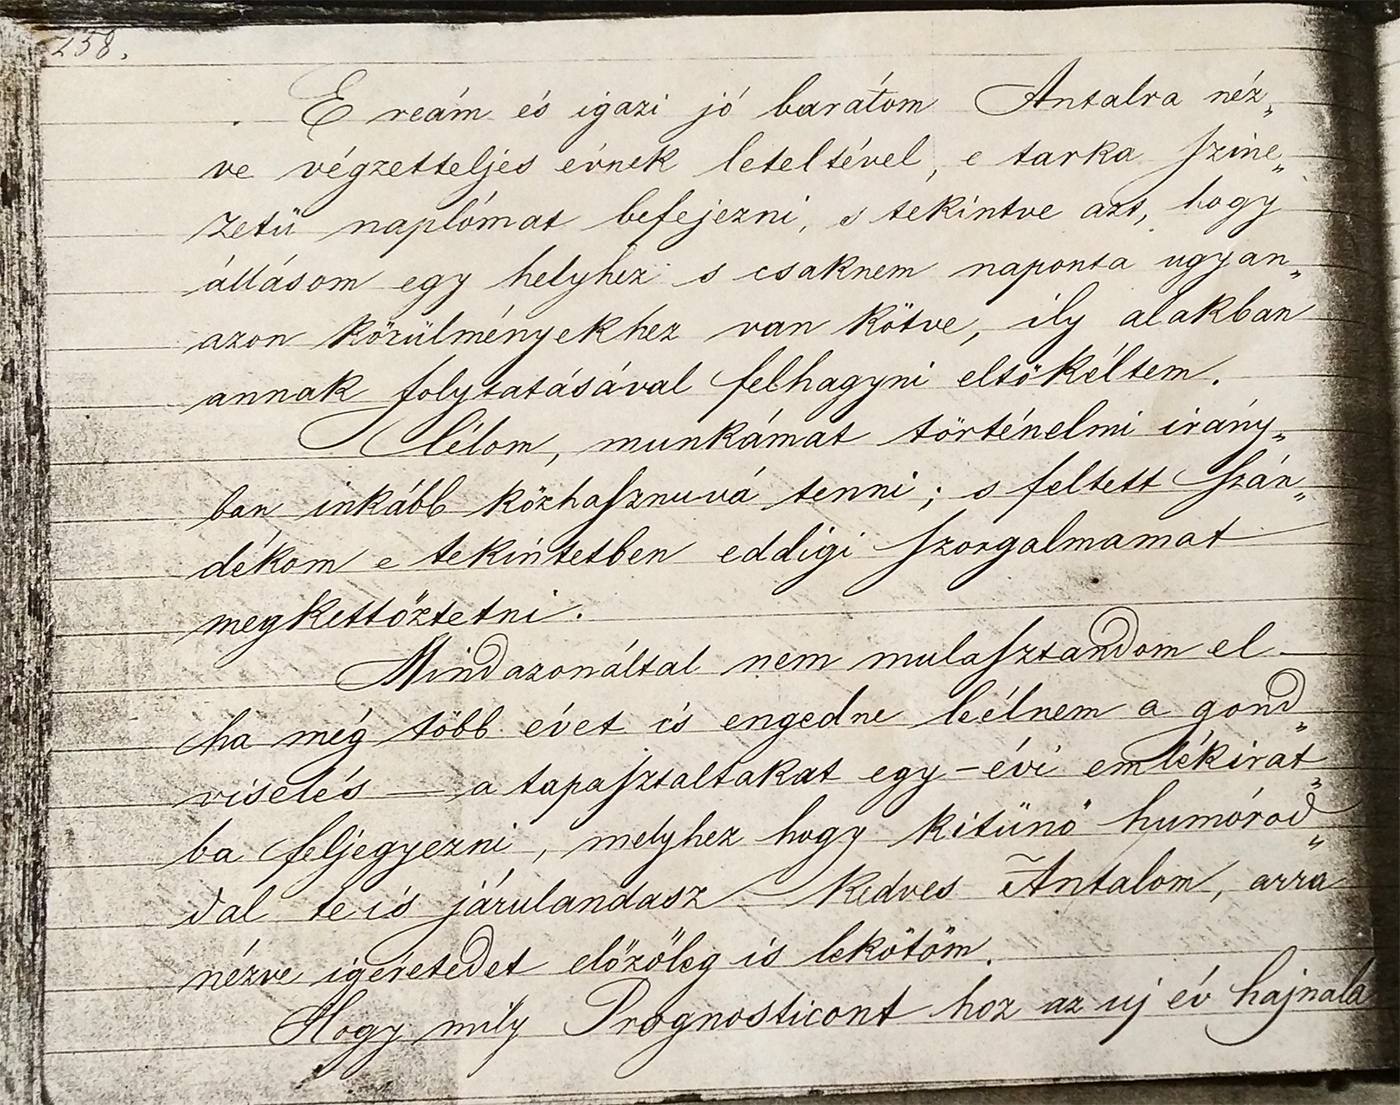 258.
E reám és igazi jó barátom Antalra néz„
ve végzetteljes évnek leteltével, e tarka szine„
zetü naplómat befejezni, s tekintve azt, hogy
állásom egy helyhez s csaknem naponta ugyan„
azon körülményekhez van kötve, ily alakban
annak folytatásával felhagyni eltökéltem.
Célom, munkámat történelmi irány„
ban inkább közhasznuvá tenni; s feltett szán„
dékom e tekintetben eddigi szorgalmamat
megkettöztetni.
Mindazonáltal nem mulasztandom el —
ha még több évet is engedne leélnem a gond„
viselés — a tapasztaltakat egy-évi emlékirat„
ba feljegyezni, melyhez hogy kitünö humórod„
dal te is járulandasz kedves Antalom, arra
nézve igéretedet elözöleg is lekötöm.
Hogy mily Prognosticont hoz az uj év hajnala